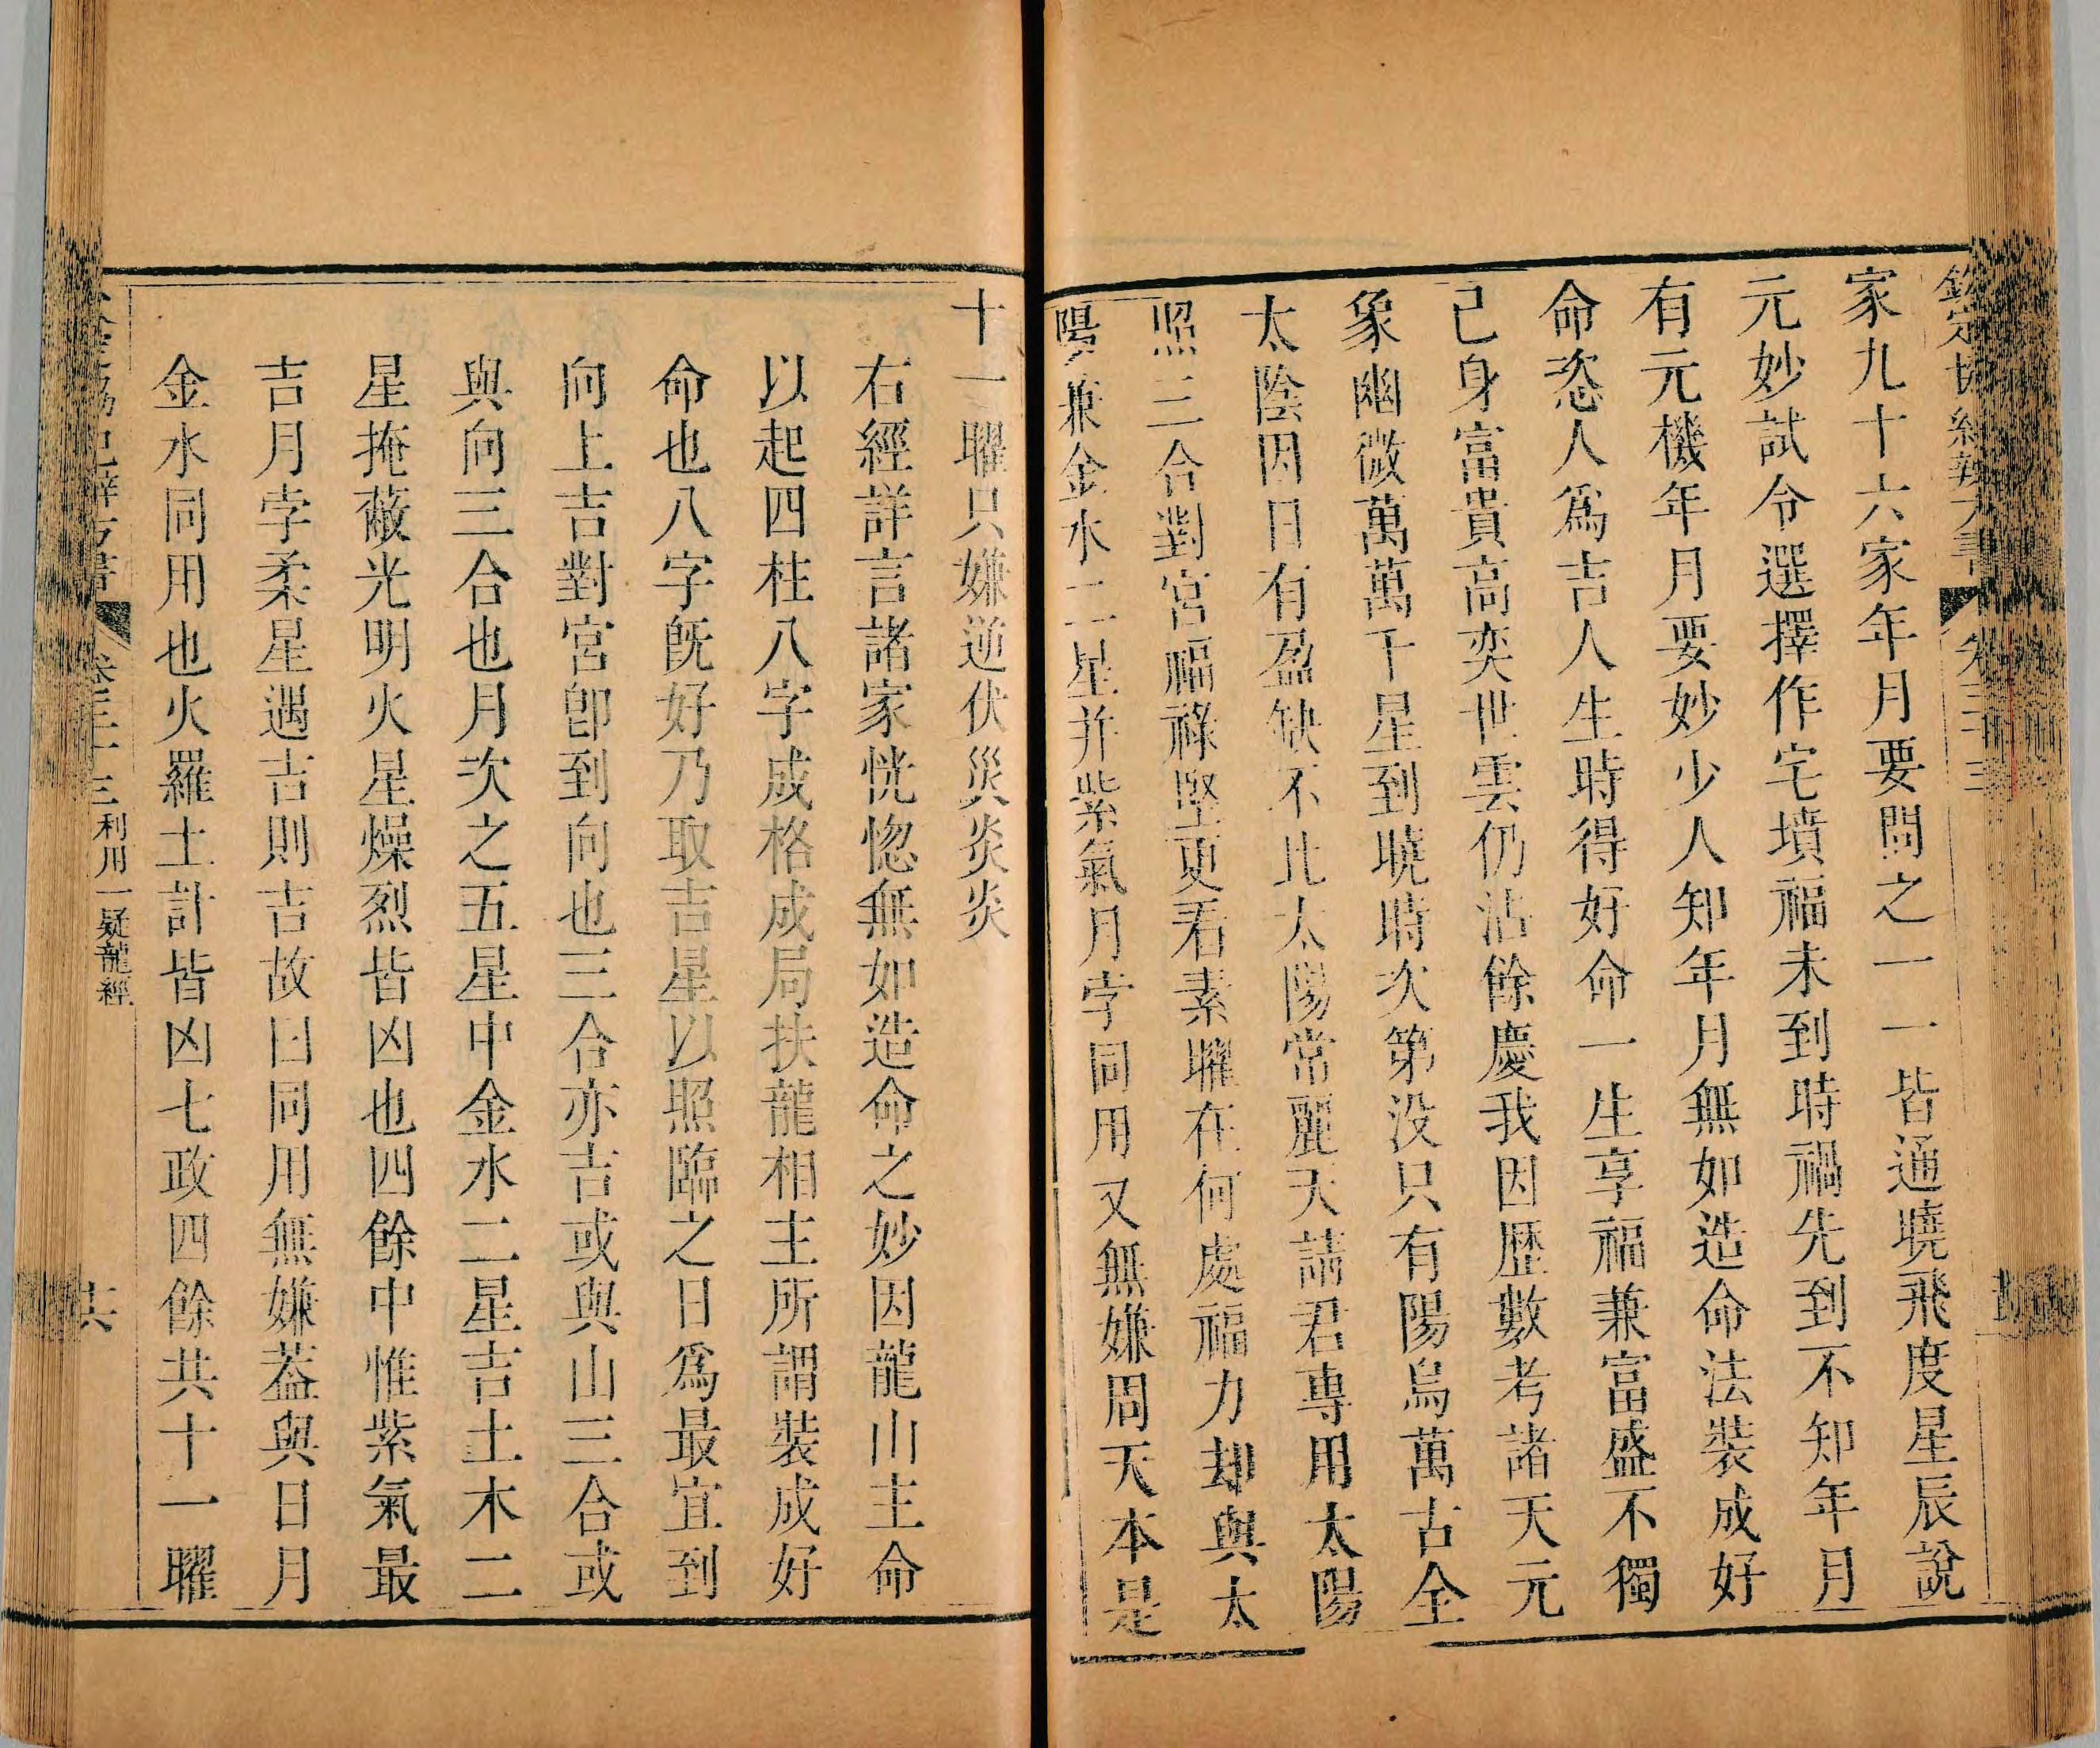 欽定協紀辨方書 卷三十三
家九十六家年月要問之一一皆通曉飛度星辰說
元妙試令選擇作宅墳福未到時禍先到不知年月
有元機年月要妙少人知年月無如造命法裝成好
命恣人爲吉人生時得好命一生享福兼富盛不獨
己身富貴高奕世雲仍沾餘慶我因歴數考諸天元
象幽微萬萬千星到曉時次第没只有陽烏萬古全
太陰因日有盈缺不比太陽常麗天請君專用太陽
照三合對宮福祿堅更看素曜在何處福力却與太
陽兼金水二星并紫氣月孛同用又無嫌周天本是
十一曜只嫌逆伏災炎炎
右經詳言諸家恍惚無如造命之妙因龍山主命
以起四柱八字成格成局扶龍相主所謂裝成好
命也八字旣好乃取吉星以照臨之日爲最宜到
向上吉對宮卽到向也三合亦吉或與山三合或
與向三合也月次之五星中金水二星吉土木二
星掩蔽光明火星燥烈皆凶也四餘中惟紫氣最
吉月孛柔星遇吉則吉故曰同用無嫌葢與日月
金水同用也火羅土計皆凶七政四餘共十一曜
協紀辨方書 卷三十三 利用一 疑龍經